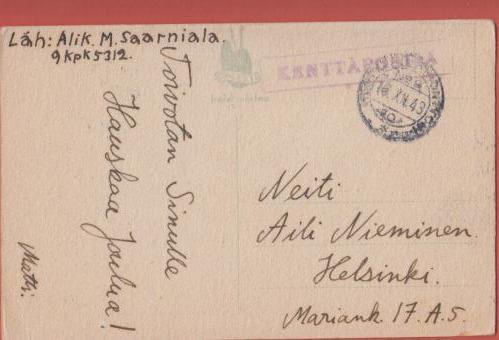 Läh: Alik. M. Saarniala.
9 KpK 5312.
KENTTÄPOSTIA
18.XII.43
Toivotan Sinulle
Hauskaa Joulua!
Matti.
Neiti
Aili Nieminen.
Helsinki.
Mariank. 17. A. 5